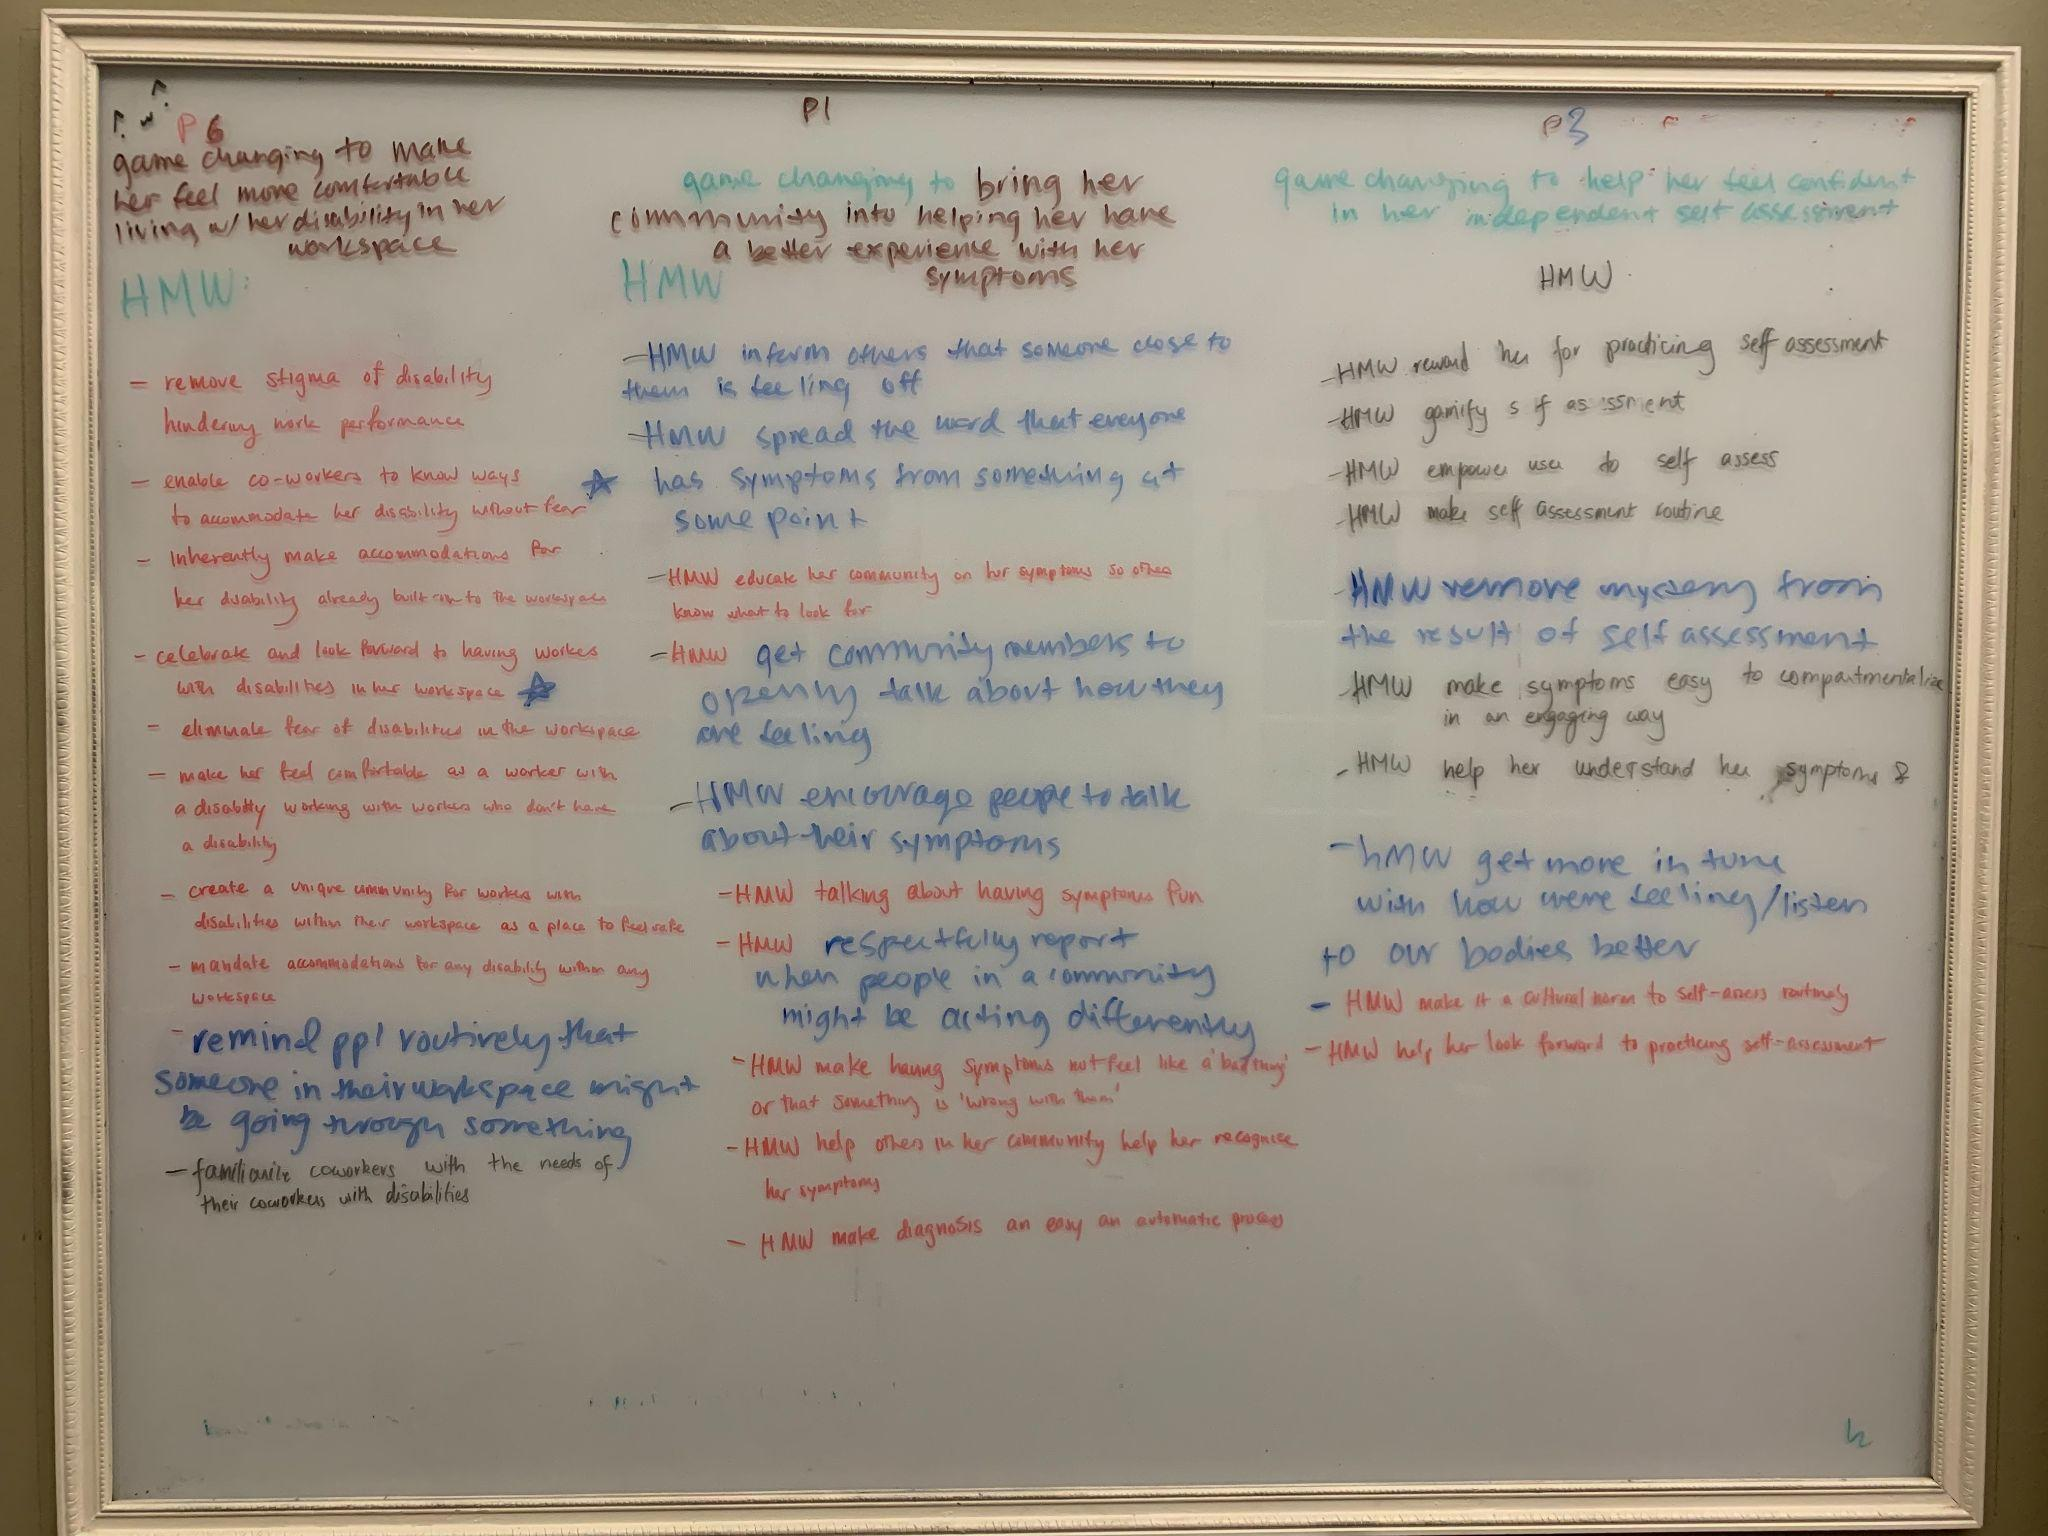 P6
game changing to make
her feel more comfortable
living w/ her disability in her
workspace
HMW:
- remove stigma of disability
hindering work performance
- enable co-workers to know ways
to accommodate her disability without fear
- Inherently make accommodations for
her disability already built to the workspace
- celebrate and look forward to having workers
with disabilities in her workspace
- eliminate fear of disabilities in the workspace
- make her feel comfortable as a worker with
a disability working with workers who don't have
a disability
- create a unique community for workers with
disabilities within their workspace as a place to feel safe
- mandate accommodations for any disability within any
workspace
- remind ppl routinely that
someone in their workspace might
be going through something
- familiarize coworkers with the needs of
their coworkers with disabilities
P1
game changing to bring her
community into helping her have
a better experience with her
symptoms
HMW
- HMW inform others that someone close to
them is feeling off
- HMW spread the word that everyone
has symptoms from something at
some point
- HMW educate her community on her symptoms so others
know what to look for
- HMW get community members to
openly talk about how they
are feeling
- HMW encourage people to talk
about their symptoms
- HMW talking about having symptoms fun
- HMW respectfully report
when people in a community
might be acting differently
- HMW make having symptoms not feel like a 'bad thing'
or that something is 'wrong with them'
- HMW help others in her community help her recognize
her symptoms
- HMW make diagnosis an easy an automatic process
P3
game changing to help her feel confident
in her independent self assessment
HMW
- HMW reward her for practicing self assessment
- HMW gamify s f assessment
- HMW empower user to self assess
- HMW make self assessment routine
- HMW remove mystery from
the result of self assessment
- HMW make symptoms easy to compartmentalize
in an engaging way
- HMW help her understand her symptoms &
- hMW get more in tune
with how were feeling/listen
to our bodies better
- HMW make it a cultural norm to self-assess routinely
- HMW help her look forward to practicing self-assessment